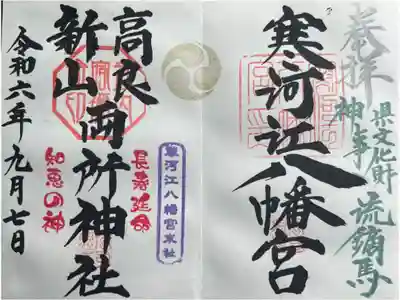 奉拝
県文化財
神事 流鏑馬
寒河江八幡宮
寒河江八幡宮末社
高良
新山
両所神社
長寿延命
知恵の神
令和六年九月七日